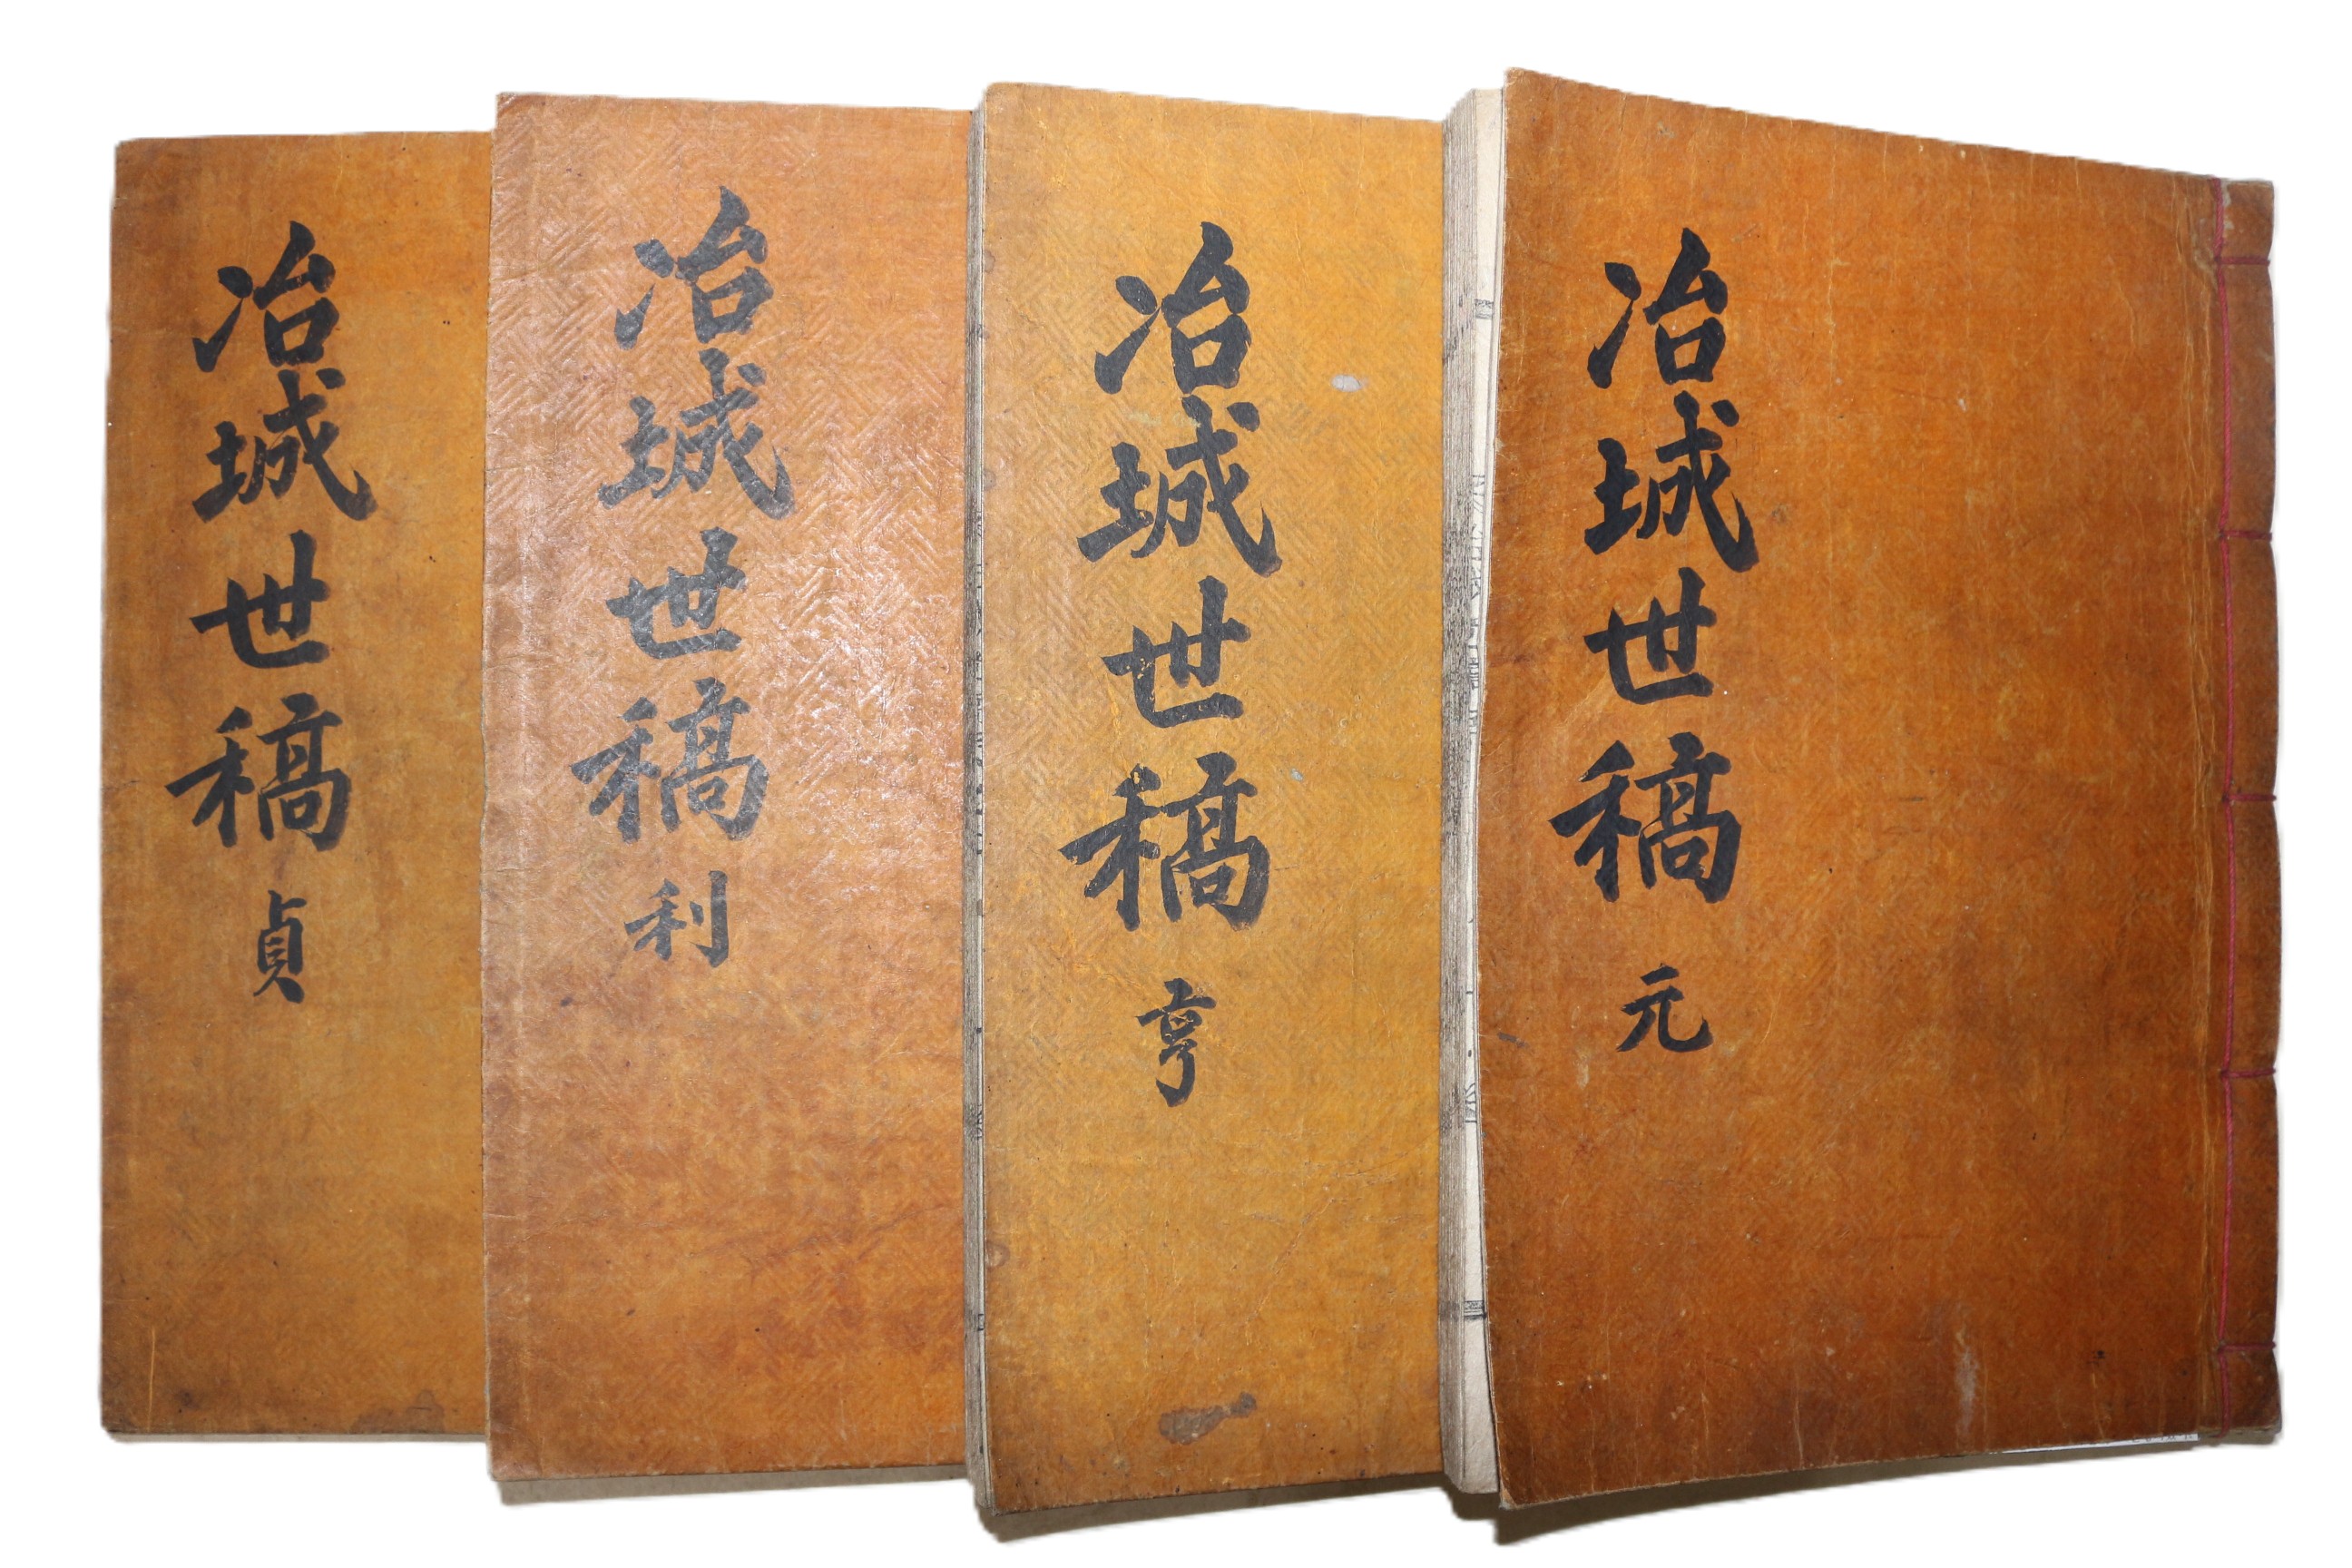 冶城世稿 元
冶城世稿 亨
冶城世稿 利
冶城世稿 貞